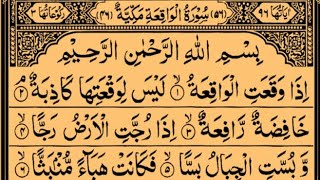 اٰیَاتُهَا ٩٦ (٥٦) سُوْرَةُ الْوَاقِعَةِ مَكِّیَّةٌ (٤٦) رُكُوْعَاتُهَا ٣
بِسْمِ اللّٰهِ الرَّحْمٰنِ الرَّحِیْمِ
اِذَا وَقَعَتِ الْوَاقِعَةُ ۙ﴿١﴾ لَیْسَ لِوَقْعَتِهَا كَاذِبَةٌ ۘ﴿٢﴾
خَافِضَةٌ رَّافِعَةٌ ۙ﴿٣﴾ اِذَا رُجَّتِ الْاَرْضُ رَجًّا ۙ﴿٤﴾
وَّ بُسَّتِ الْجِبَالُ بَسًّا ۙ﴿٥﴾ فَكَانَتْ هَبَآءً مُّنْۢبَثًّا ۙ﴿٦﴾